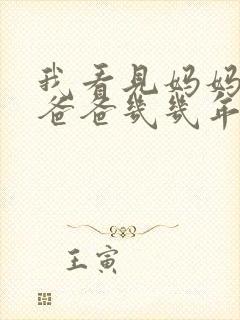 我看见妈妈
爸爸几几年
王寅